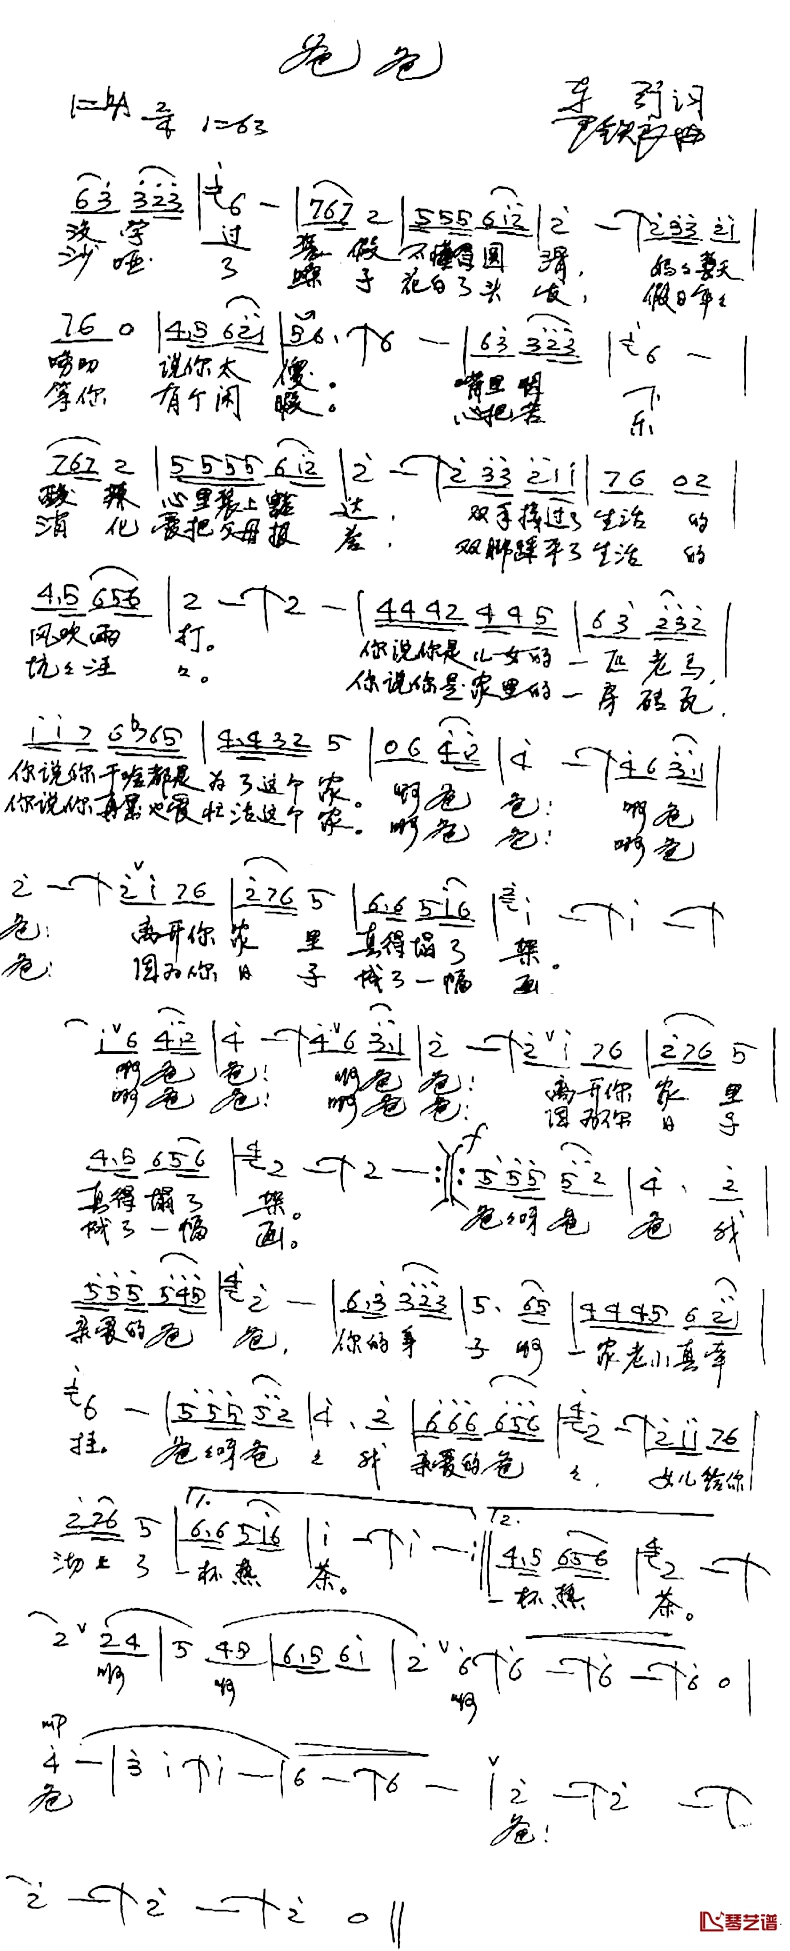 爸爸
1=♭A 2/4 1=63
词
曲
6 3 3 2 3 | 6 - | 7 6 7 2 | 5 5 5 6 1 2 | 2 - | 2 3 3 2 1 |
没学 过 装假 不懂得圆 滑， 妈妈整天
沙哑 了 嗓子 花白了头 发， 假日年年
7 6 0 | 4. 5 6 2 1 | 5 6. | 6 - | 6 3 3 2 3 | 6 - |
唠叨 说你太 傻。 嘴里咽 下
等你 有个闲 暇。 心把苦 乐
7 6 7 2 | 5 5 5 5 6 1 2 | 2 - | 2 3 3 2 1 1 | 7 6 0 2 |
酸辣 心里装上豁 达， 双手接过了 生活 的
消化 爱把父母报 答， 双脚踩平了 生活 的
4. 5 6 5 6 | 2 - | 2 - | 4 4 4 2 4 4 5 | 6 3 2 3 2 |
风吹雨 打。 你说你是儿女的 一匹老马，
坑坑洼 洼。 你说你是家里的 一房砖瓦，
1 1 7 6 ♭7 6 5 | 4. 4 3 2 5 | 0 6 4 2 | 4 - | 4 6 3. 1 |
你说你干啥都是 为了这个 家。 啊爸 爸！ 啊爸
你说你再累也爱 忙活这个 家。 啊爸 爸！ 啊爸
2 - | 2 1 7 6 | 2 7 6 5 | 6. 6 5 1 6 | 1 - | 1 -
爸！ 离开你 家里 真得塌了 架。
爸！ 因为你 日子 成了一幅 画
1 6 4. 2 | 4 - | 4 6 3. 1 | 2 - | 2 1 7 6 | 2 7 6 5 |
啊爸 爸！ 啊爸 爸！ 离开你 家里
啊爸 爸！ 啊爸 爸！ 因为你 日子
4. 5 6 5 6 | 2 - | 2 - :‖: f 5 5 5 5 2 | 4. 2 |
真得塌了 架。 爸爸呀爸 爸 我
成了一幅 画。
5 5 5 5 4 5 | 2 - | 6. 3 3 2 3 | 5. 6 5 | 4 4 4 5 6 2 1 |
亲爱的爸 爸， 你的身 子 啊 一家老小真牵
6 - | 5 5 5 5 2 | 4. 2 | 6 6 6 6 5 6 | 2 - | 2 1 1 7 6 |
挂。 爸爸呀爸 爸 我 亲爱的爸 爸， 女儿给你
2 7 6 5 | 1. 6. 6 5 1 6 | 1 - | 1 - :‖ 2. 4. 5 6 5 6 | 2 -
沏上了 一杯热 茶。 一杯热 茶。
2 2 4 | 5 4 5 | 6. 5 6 1 | 2 6 | 6 - | 6 - | 6 0 |
啊 啊 啊
mp
4 - | 3 1 | 1 - | 6 - | 6 - | 2 - | 2 -
爸 爸！
2 - | 2 - | 2 0 ‖
琴艺谱